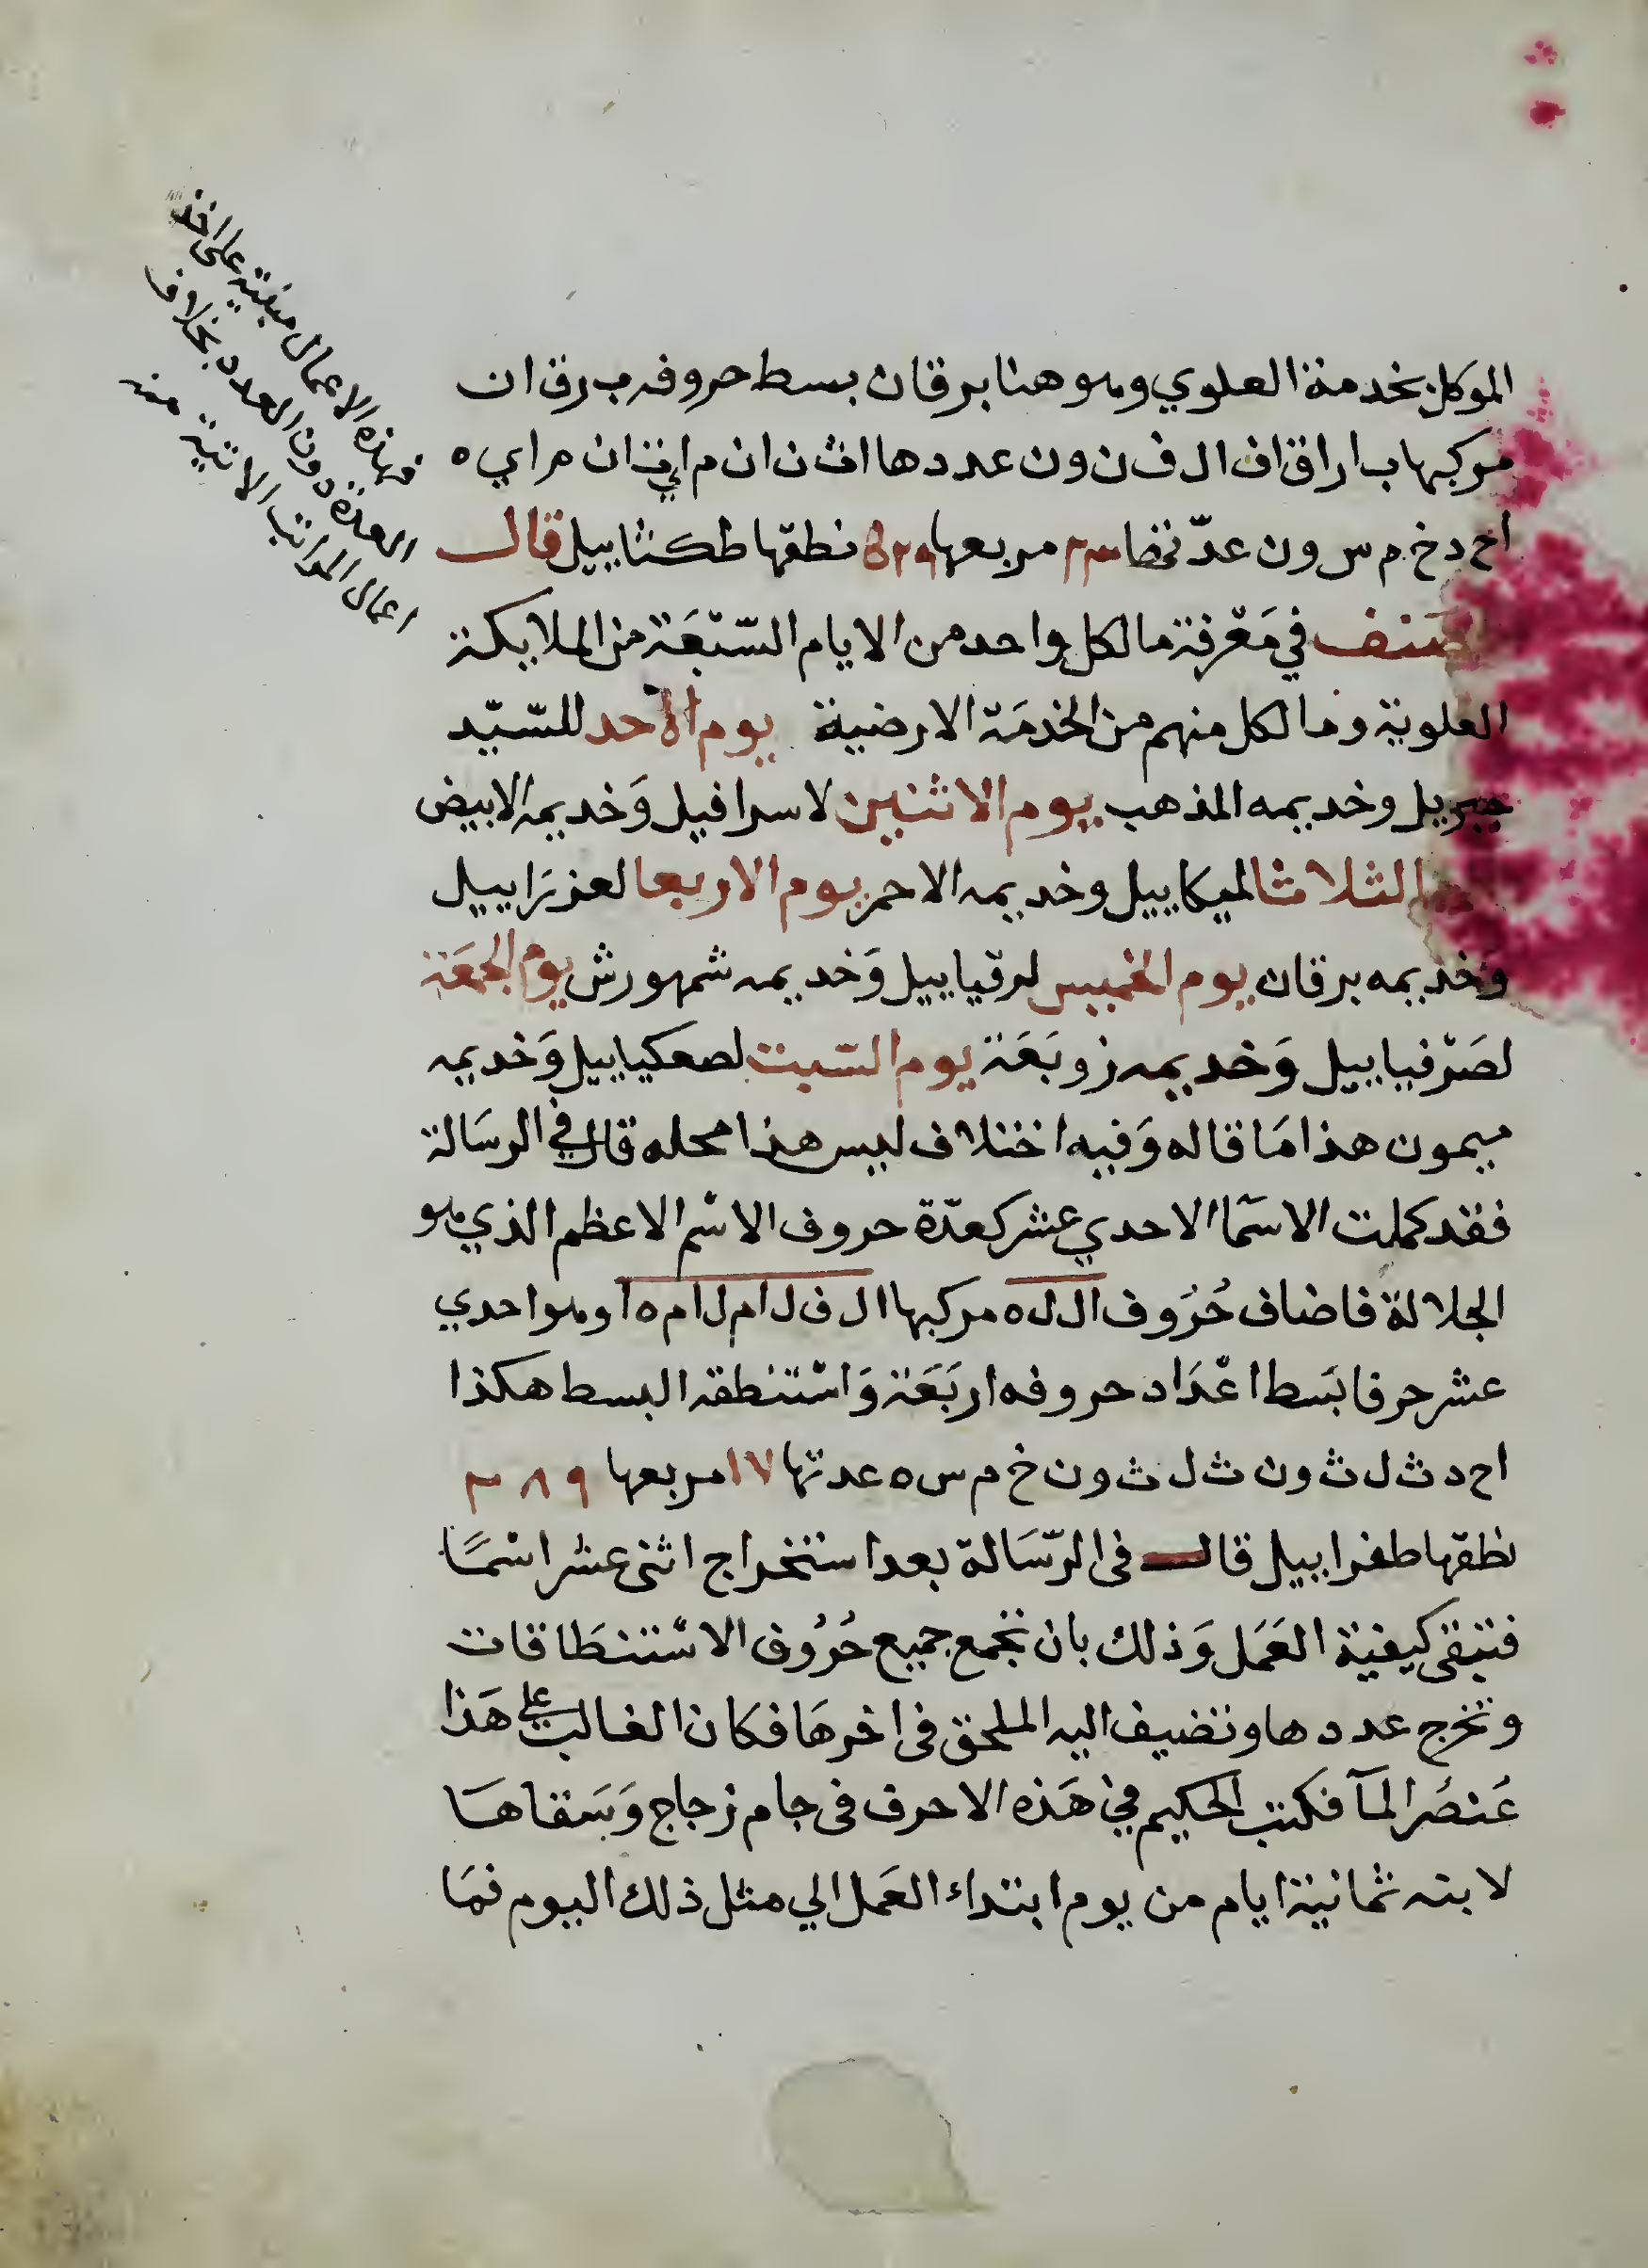 الموكل بخدمة العلوي وهو هنا برقان بسط حروفه ب ر ق ا ن
مركبها ب ا ر ا ق ا ف ا ل ف ن و ن عددها اث ن ا ن م اي ت ا ن م ا ي ه
ا ح د خ م س و ن عدّتها ٣٣ مربعها نطقها طكثاييل قال
المصنف في مَعْرفة ما لكل واحد من الايام السّبْعَة من الملايكة
العلوية وما لكل منهم من الخدمَة الارضية يوم الاحد للسّيّد
جبريل وخديمه المذهب يوم الاثنين لاسرافيل وَخديمه الابيض
يوم الثلاثا لميكاييل وخديمه الاحمر يوم الاربعا لعزرَاييل
وَخديمه برقان يوم الخميس لرقياييل وَخديمه شمهورش يوم الجمعَة
لصَرْفياييل وَخديمه زوبَعَة يوم السّبت لصعكياييل وَخديمه
ميمون هذا مَا قاله وَفيه اختلاف ليس هذا محله قال في الرسَالة
فقد كملت الاسمَا الاحدي عشر كعدّة حروف الاسْم الاعظم الذي هو
الجلالة فاضاف حُرُوف ا ل ل ه مركبها ا ل ف ل ا م ل ا م ه ا وهو احدي
عشر حرفا بَسط اعْدَاد حروفه اربَعَة وَاسْتنطقه البسط هكذا
ا ح د ث ل ث و ن ث ل ث و ن خ م س ه عدتها ١٧ مربعها ٢٨٩
نطقها طفراييل قال في الرّسَالة بعد استخراج اثنى عشر اسْمًا
فتبقى كيفية العَمَل وَذلك بان تجمع جميع حُرُوف الاسْتنطَاقات
وتخرج عددها وتضيف اليه الملحق في اخرهَا فكان الغالب على هَذا
عُنصُر المآ فكتب الحكيم في هَذه الاحرف في جام زجاج وَسَقاهَا
لابنه ثمانية ايام من يوم ابتداء العَمَل الي مثل ذلك اليوم فمَا
فهذه الاعمال مبنية على اخذ
العدة دون العدد بخلاف
اعمال المراتب الاتية منه